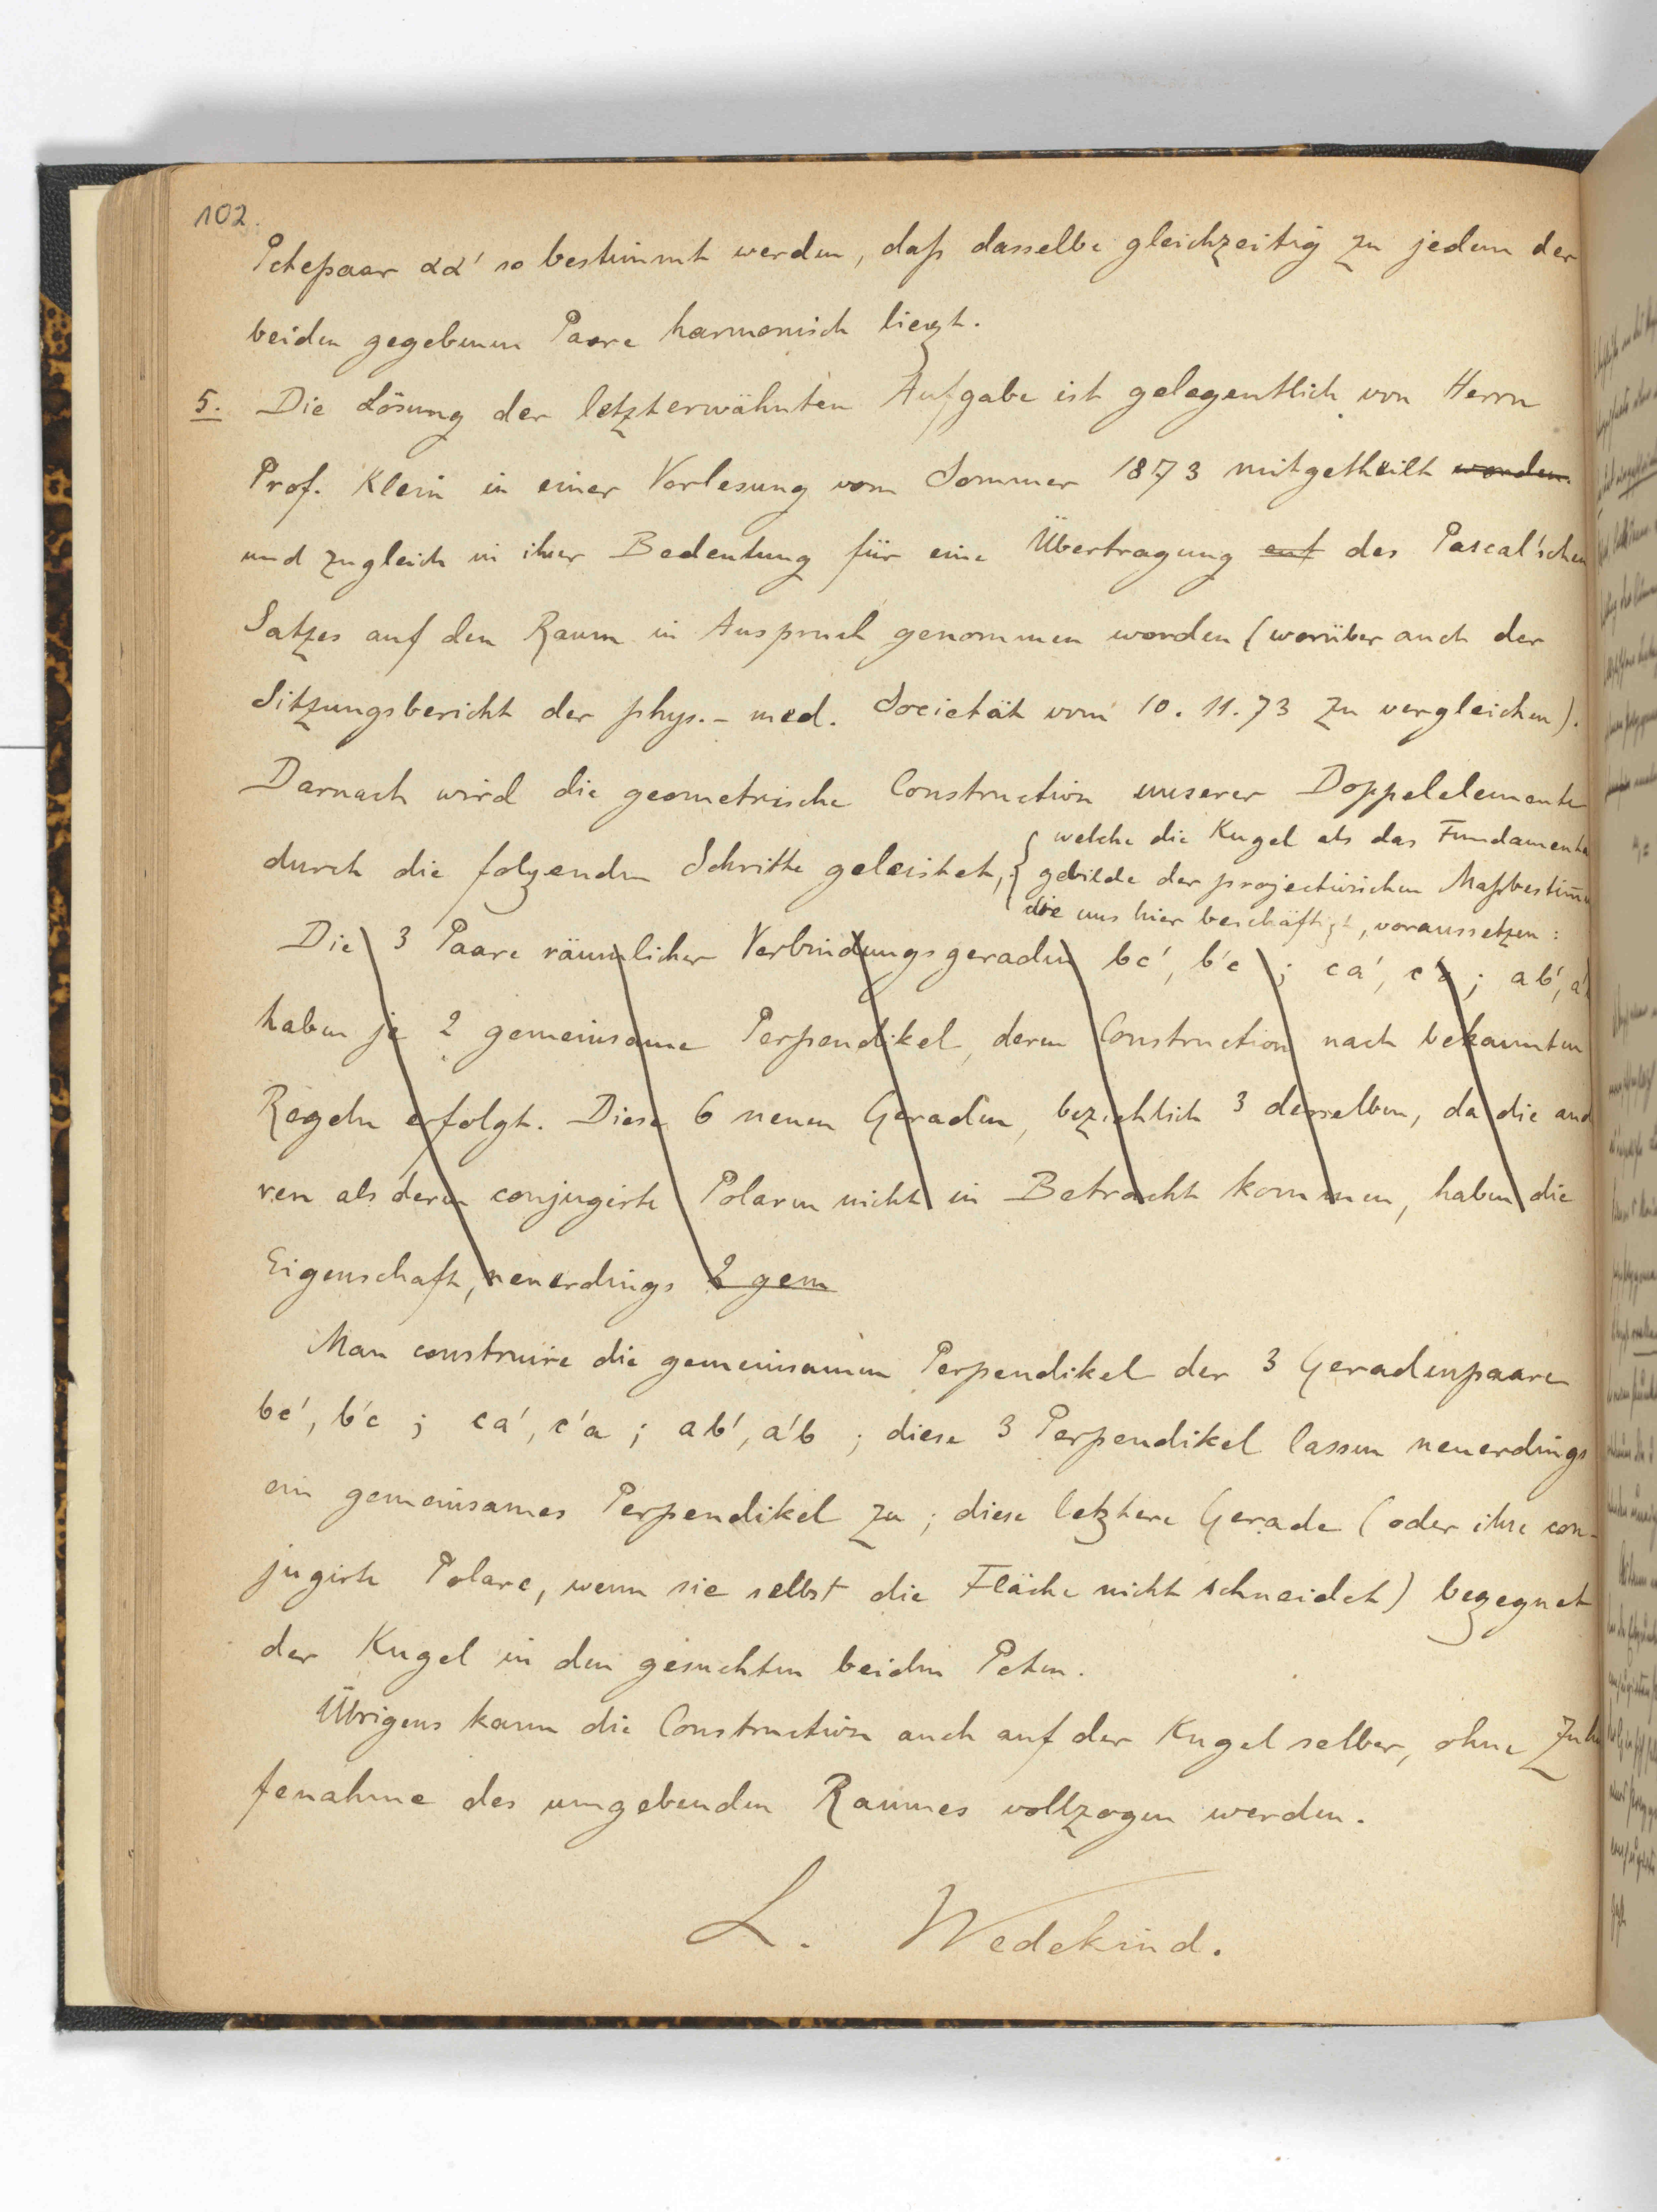 102.
Pctepaar αα' so bestimmt werden, daß dasselbe gleichzeitig zu jedem der
beiden gegebenen Paare harmonisch liegt.
5. Die Lösung der letzterwähnten Aufgabe ist gelegentlich von Herrn
Prof. Klein in einer Vorlesung vom Sommer 1873 mitgetheilt worden.
und zugleich in ihrer Bedeutung für eine Übertragung auf des Pascal'schen
Satzes auf den Raum in Anspruch genommen worden (worüber auch der
Sitzungsbericht der phys.- med. Societät vom 10. 11. 73 zu vergleichen).
Darnach wird die geometrische Construction unserer Doppelelemente
durch die folgenden Schritte geleistet,
welche die Kugel als das Fundamental
gebilde der projectivischen Maßbestim̄u
die uns hier beschäftigt, voraussetzen:
Die 3 Paare räumlicher Verbindungsgeraden bc', b'c ; ca', c'a ; ab', a'b
haben je 2 gemeinsame Perpendikel, deren Construction nach bekannten
Regeln erfolgt. Diese 6 neuen Geraden, beziehlich 3 derselben, da die and
ren als deren conjugirte Polaren nicht in Betracht kommen, haben die
Eigenschaft, neuerdings 2 gem
Man construire die gemeinsamen Perpendikel der 3 Geradenpaare
bc', b'c ; ca', c'a ; ab', a'b ; diese 3 Perpendikel lassen neuerdings
ein gemeinsames Perpendikel zu ; diese letztere Gerade (oder ihre con-
jugirte Polare, wenn sie selbst die Fläche nicht schneidet) begegnet
der Kugel in den gesuchten beiden Pcten.
Übrigens kann die Construction auch auf der Kugel selber, ohne Zuhü
fenahme des umgebenden Raumes vollzogen werden.
L. Wedekind.